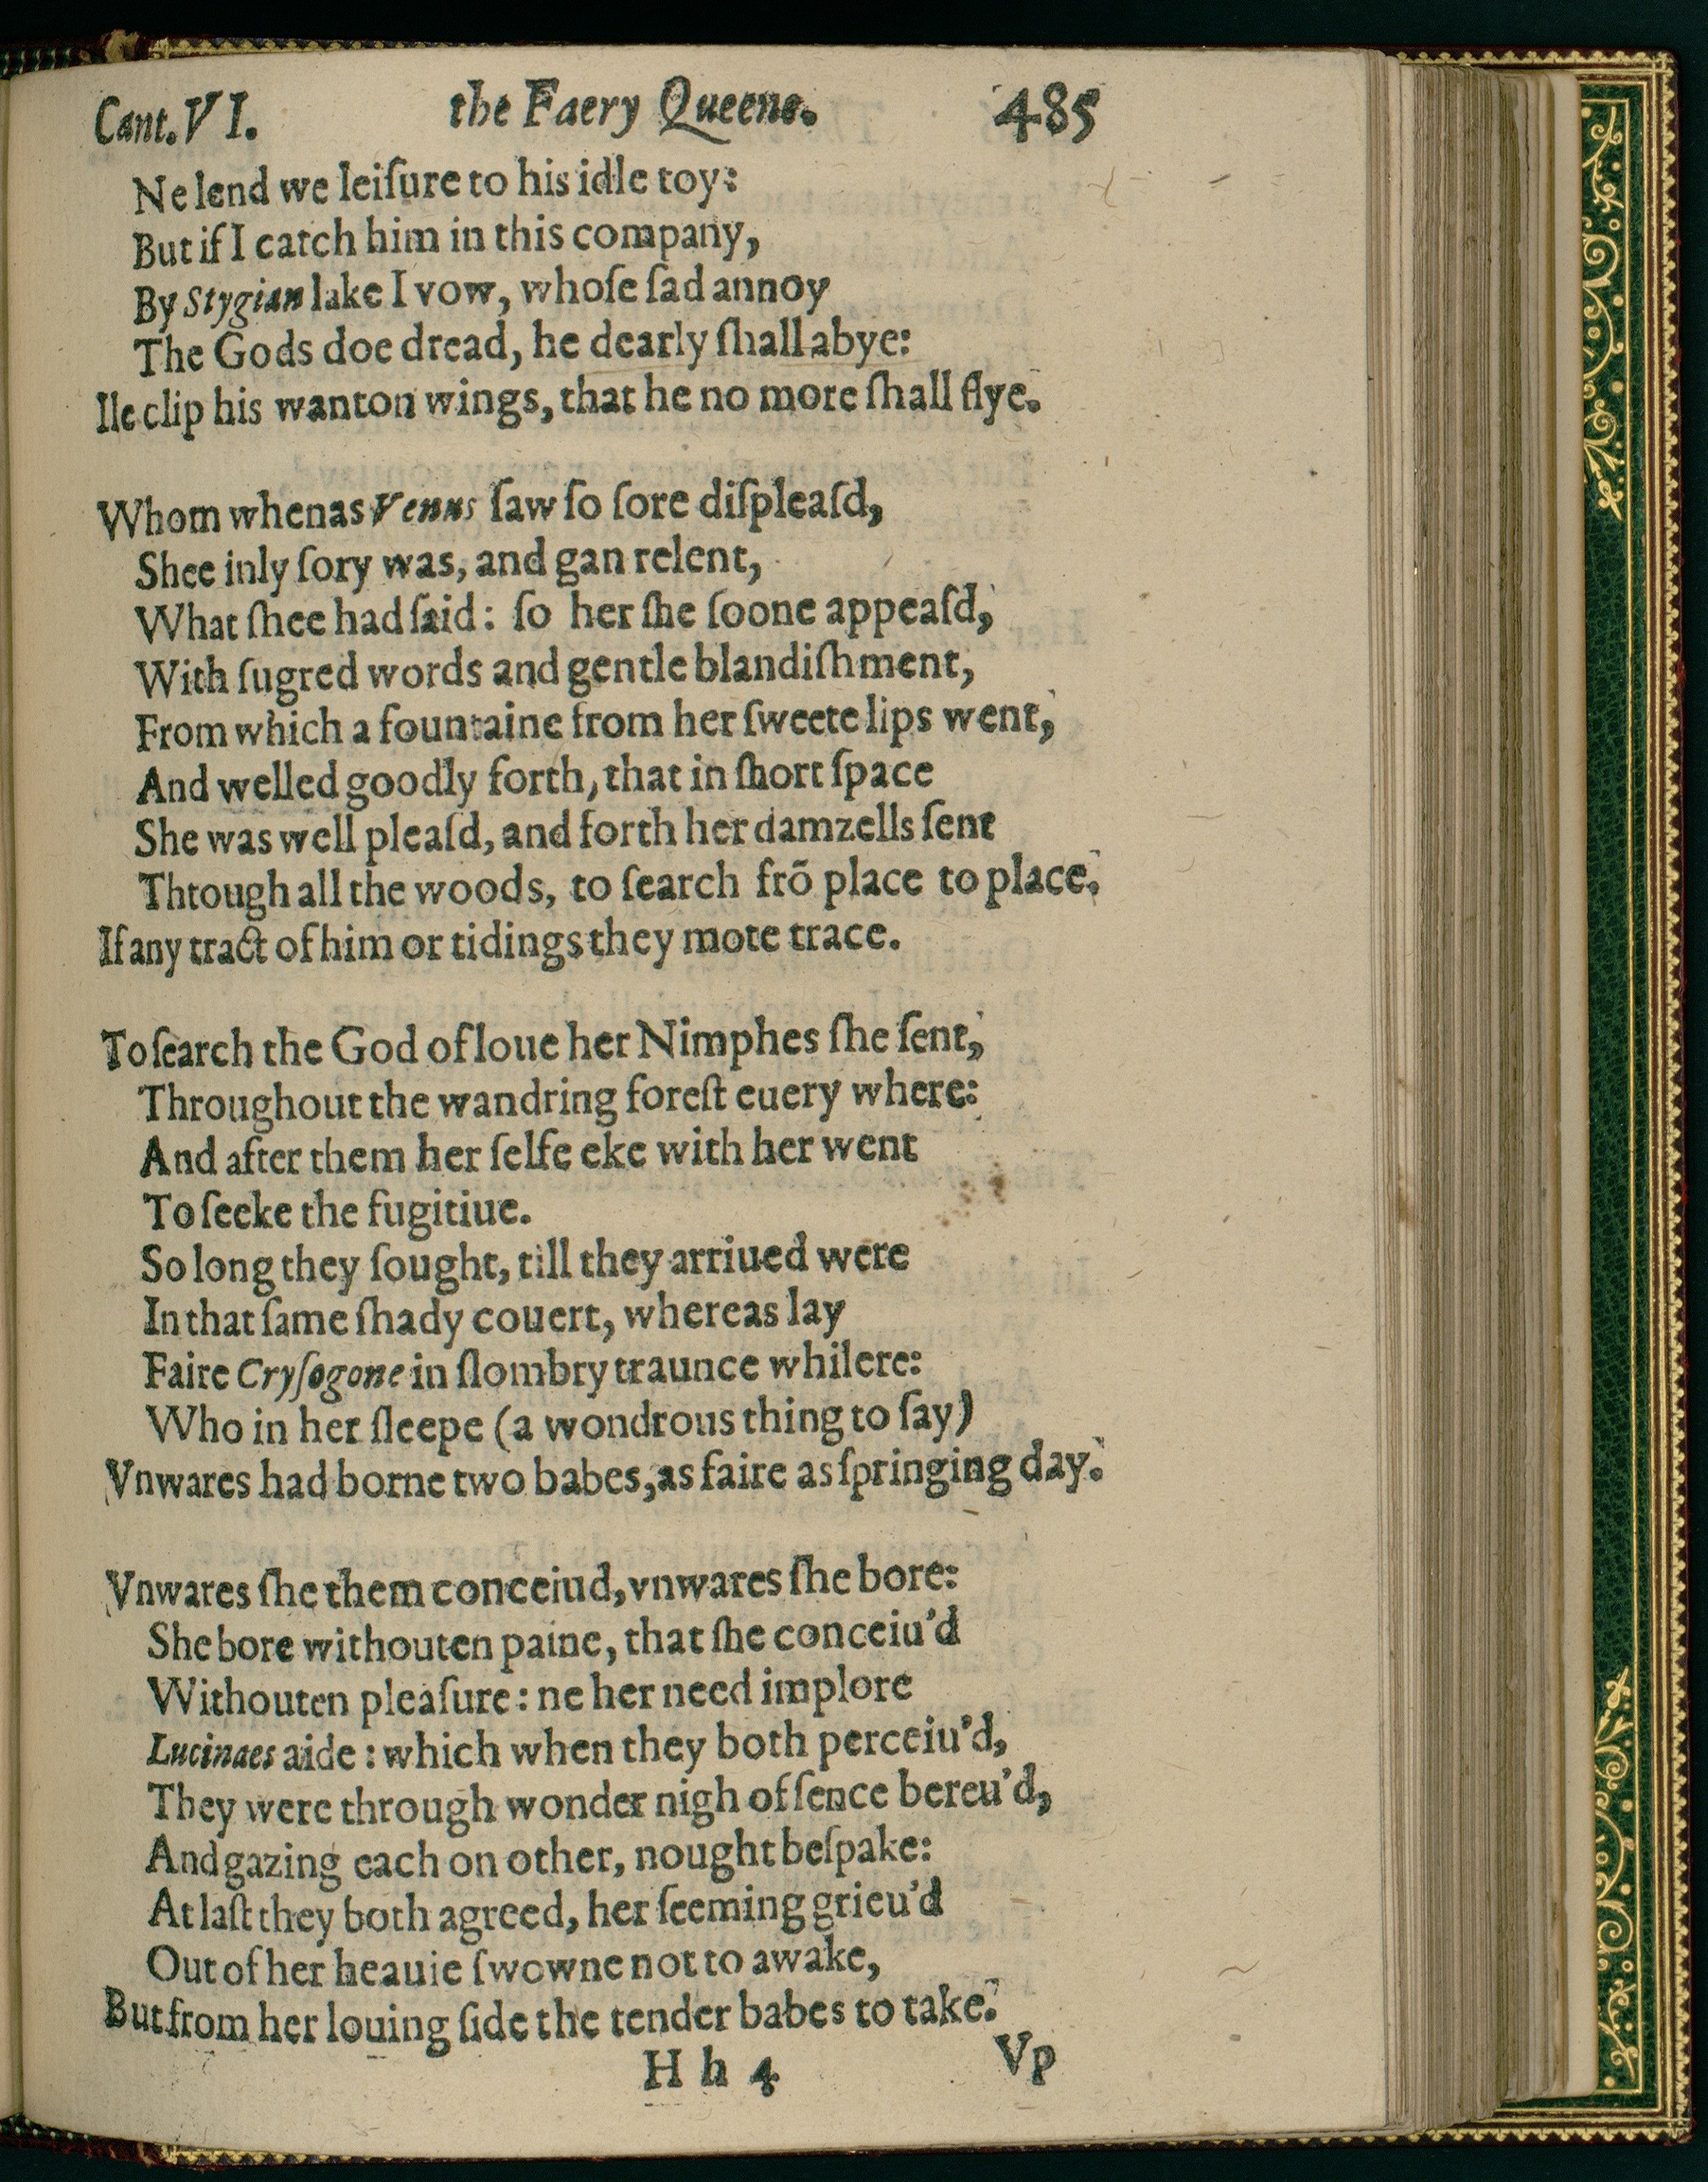 Cant. VI. the Faery Queene. 485
Ne lend we leiſure to his idle toy:
But if I catch him in this company,
By Stygian lake I vow, whoſe ſad annoy
The Gods doe dread, he dearly ſhall abye:
Ile clip his wanton wings, that he no more ſhall flye.
Whom whenas Venus ſaw ſo ſore diſpleaſd,
Shee inly ſory was, and gan relent,
What ſhee had ſaid: ſo her ſhe ſoone appeaſd,
With ſugred words and gentle blandiſhment,
From which a fountaine from her ſweete lips went,
And welled goodly forth, that in ſhort ſpace
She was well pleaſd, and forth her damzells ſent
Thtough all the woods, to ſearch frõ place to place,
If any tract of him or tidings they mote trace.
To ſearch the God of loue her Nimphes ſhe ſent,
Throughout the wandring foreſt euery where:
And after them her ſelfe eke with her went
To ſeeke the fugitiue.
So long they ſought, till they arriued were
In that ſame ſhady couert, whereas lay
Faire Cryſogone in ſlombry traunce whilere:
Who in her ſleepe (a wondrous thing to ſay)
Vnwares had borne two babes, as faire as ſpringing day.
Vnwares ſhe them conceiud, vnwares ſhe bore:
She bore withouten paine, that ſhe conceiu'd
Withouten pleaſure: ne her need implore
Lucinaes aide: which when they both perceiu'd,
They were through wonder nigh of ſence bereu'd,
And gazing each on other, nought beſpake:
At laſt they both agreed, her ſeeming grieu'd
Out of her heauie ſwowne not to awake,
But from her louing ſide the tender babes to take.
H h 4 Vp